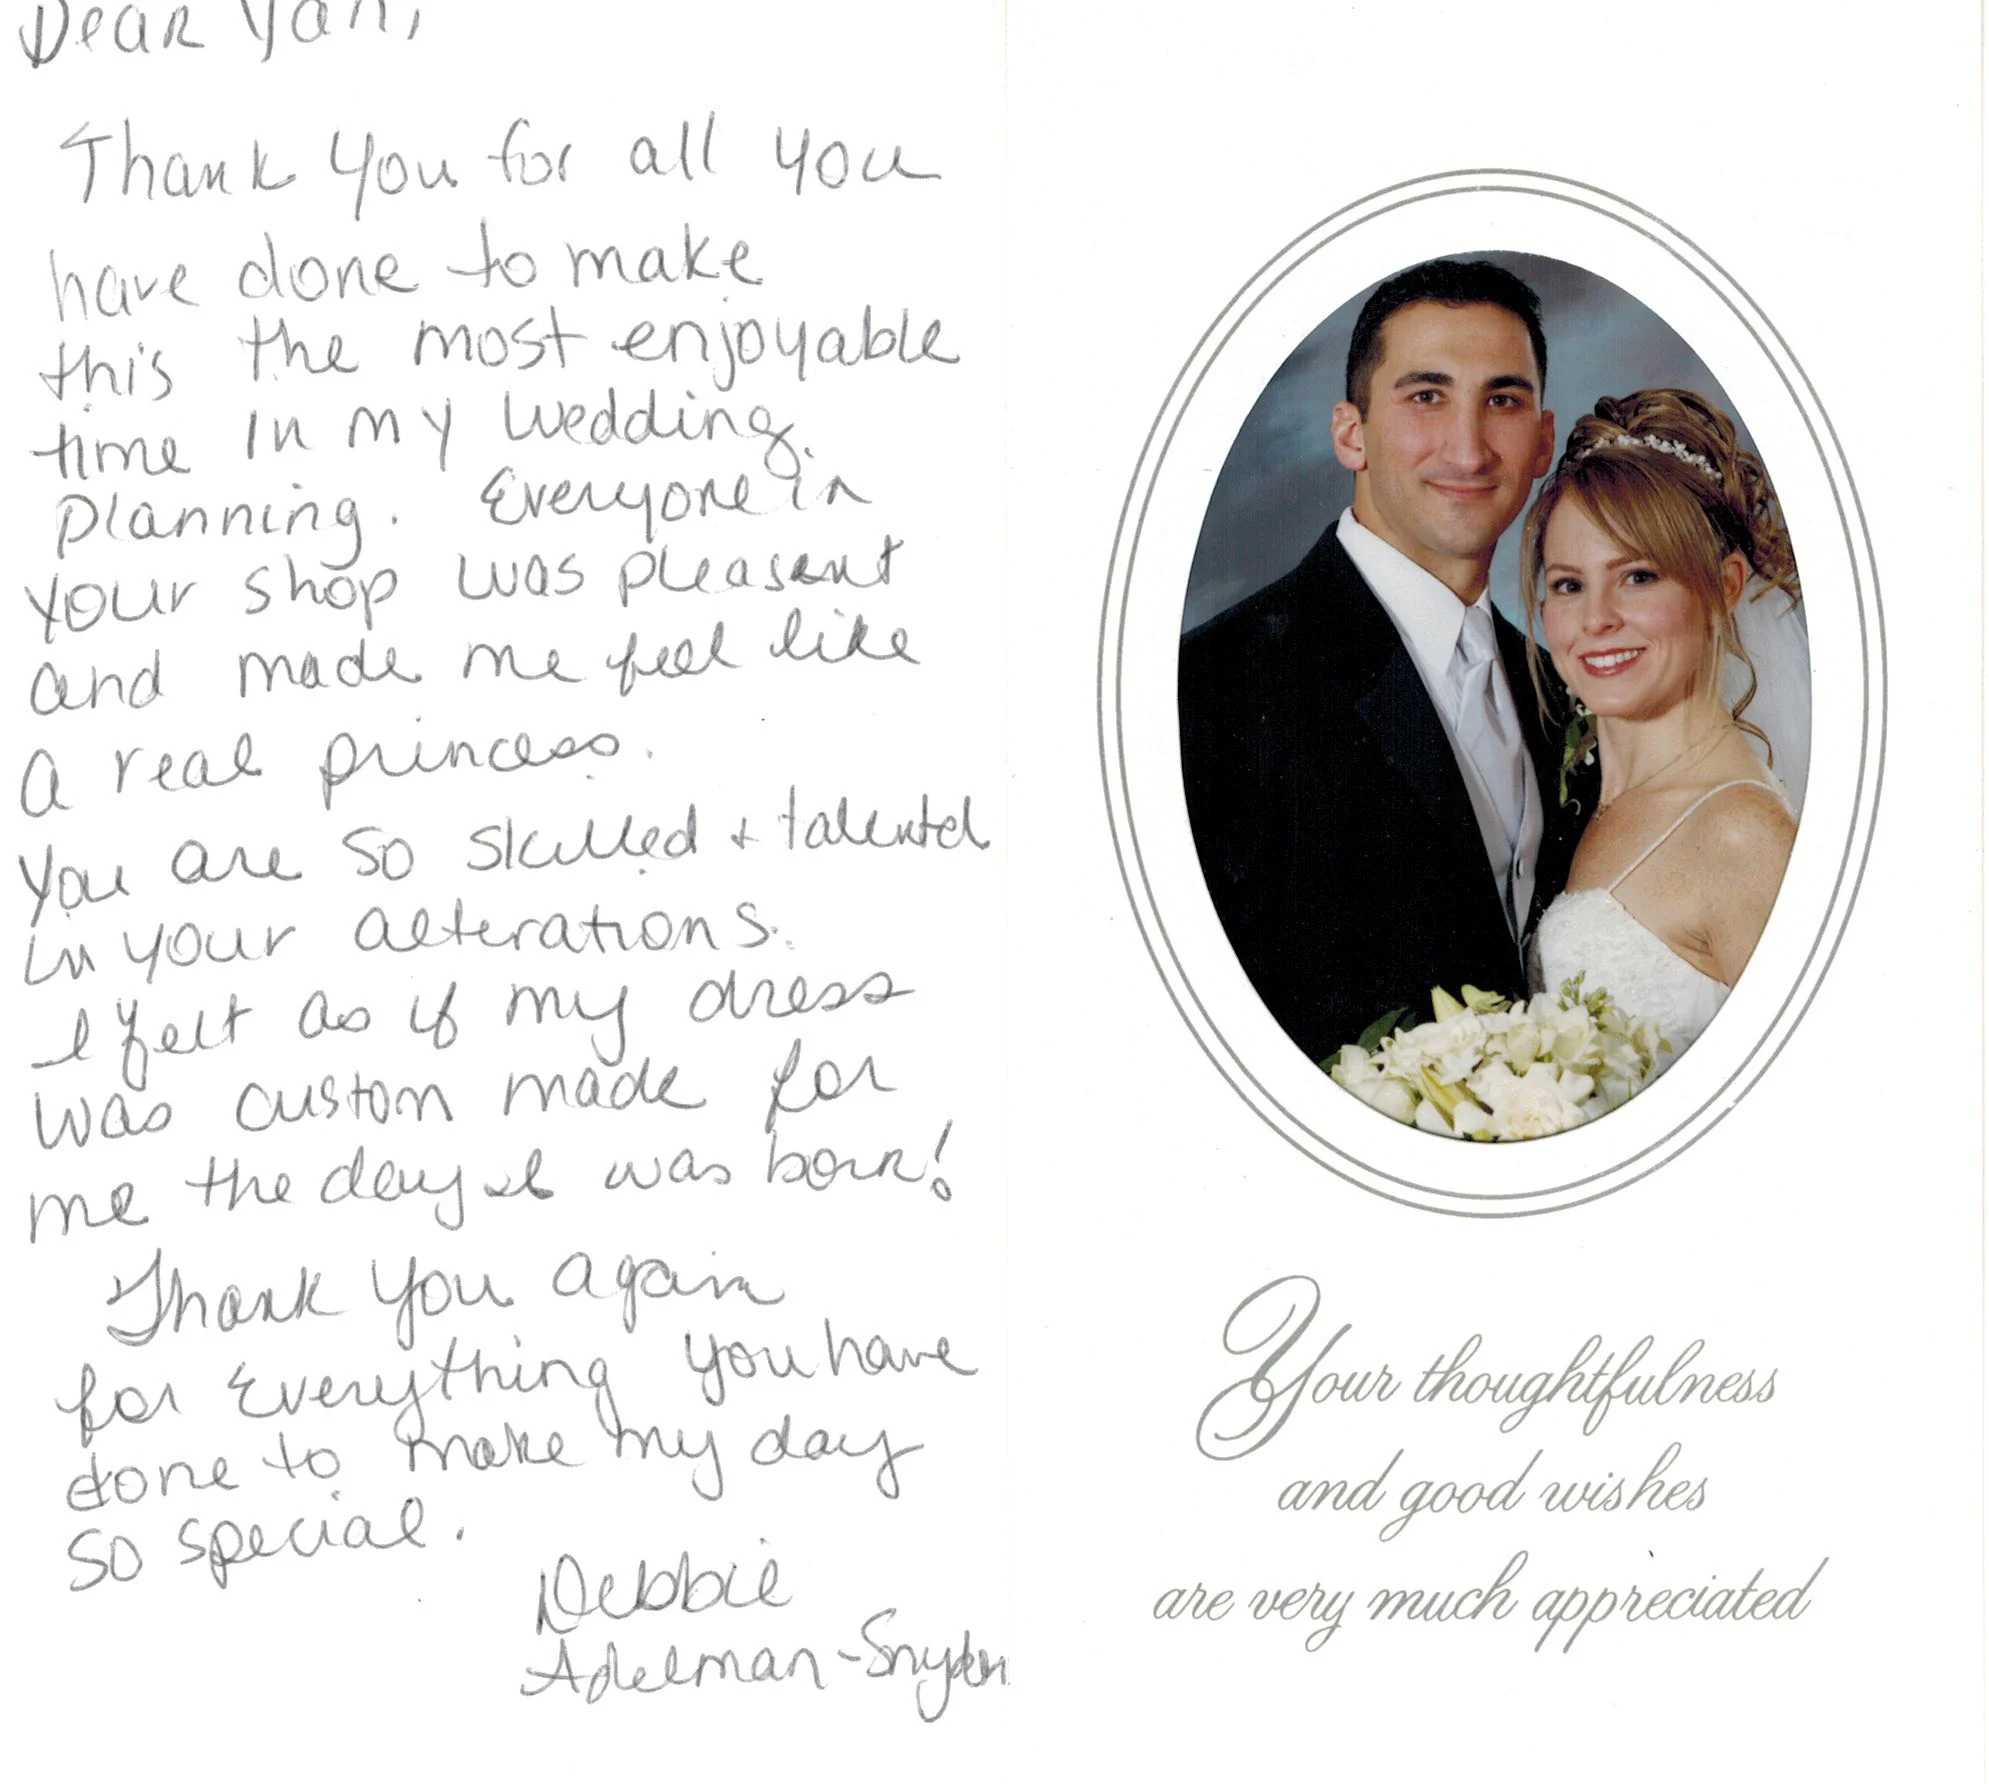 Dear Yan,
Thank you for all you
have done to make
this the most enjoyable
time in my wedding
planning. Everyone in
your shop was pleasant
and made me feel like
a real princess.
You are so skilled + talented
in your alterations.
I felt as if my dress
was custom made for
me the day I was born!
Thank you again
for everything you have
done to make my day
so special.
Debbie
Adelman-Snyder
Your thoughtfulness
and good wishes
are very much appreciated